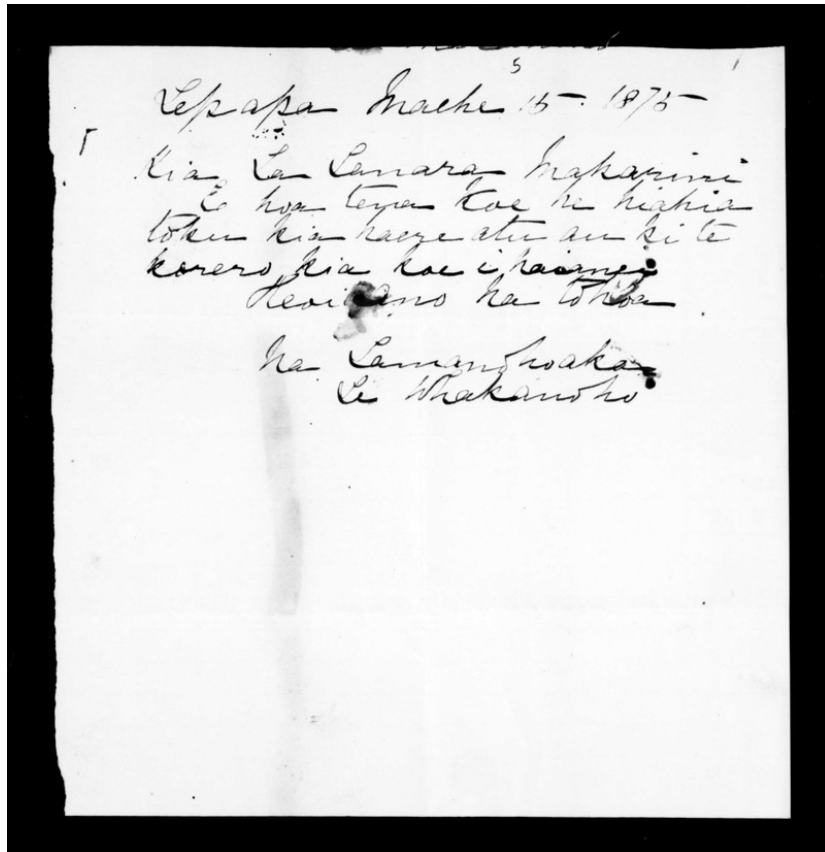 Tepapa Maehe 15 1875
Kia Ta Tanara Makarini
E hoa tena koe he hiahia
toku kia haere atu au ki te
korero kia koe i
Heoi ano na to hoa
Na Tamanohoaka
Te Whakanoho